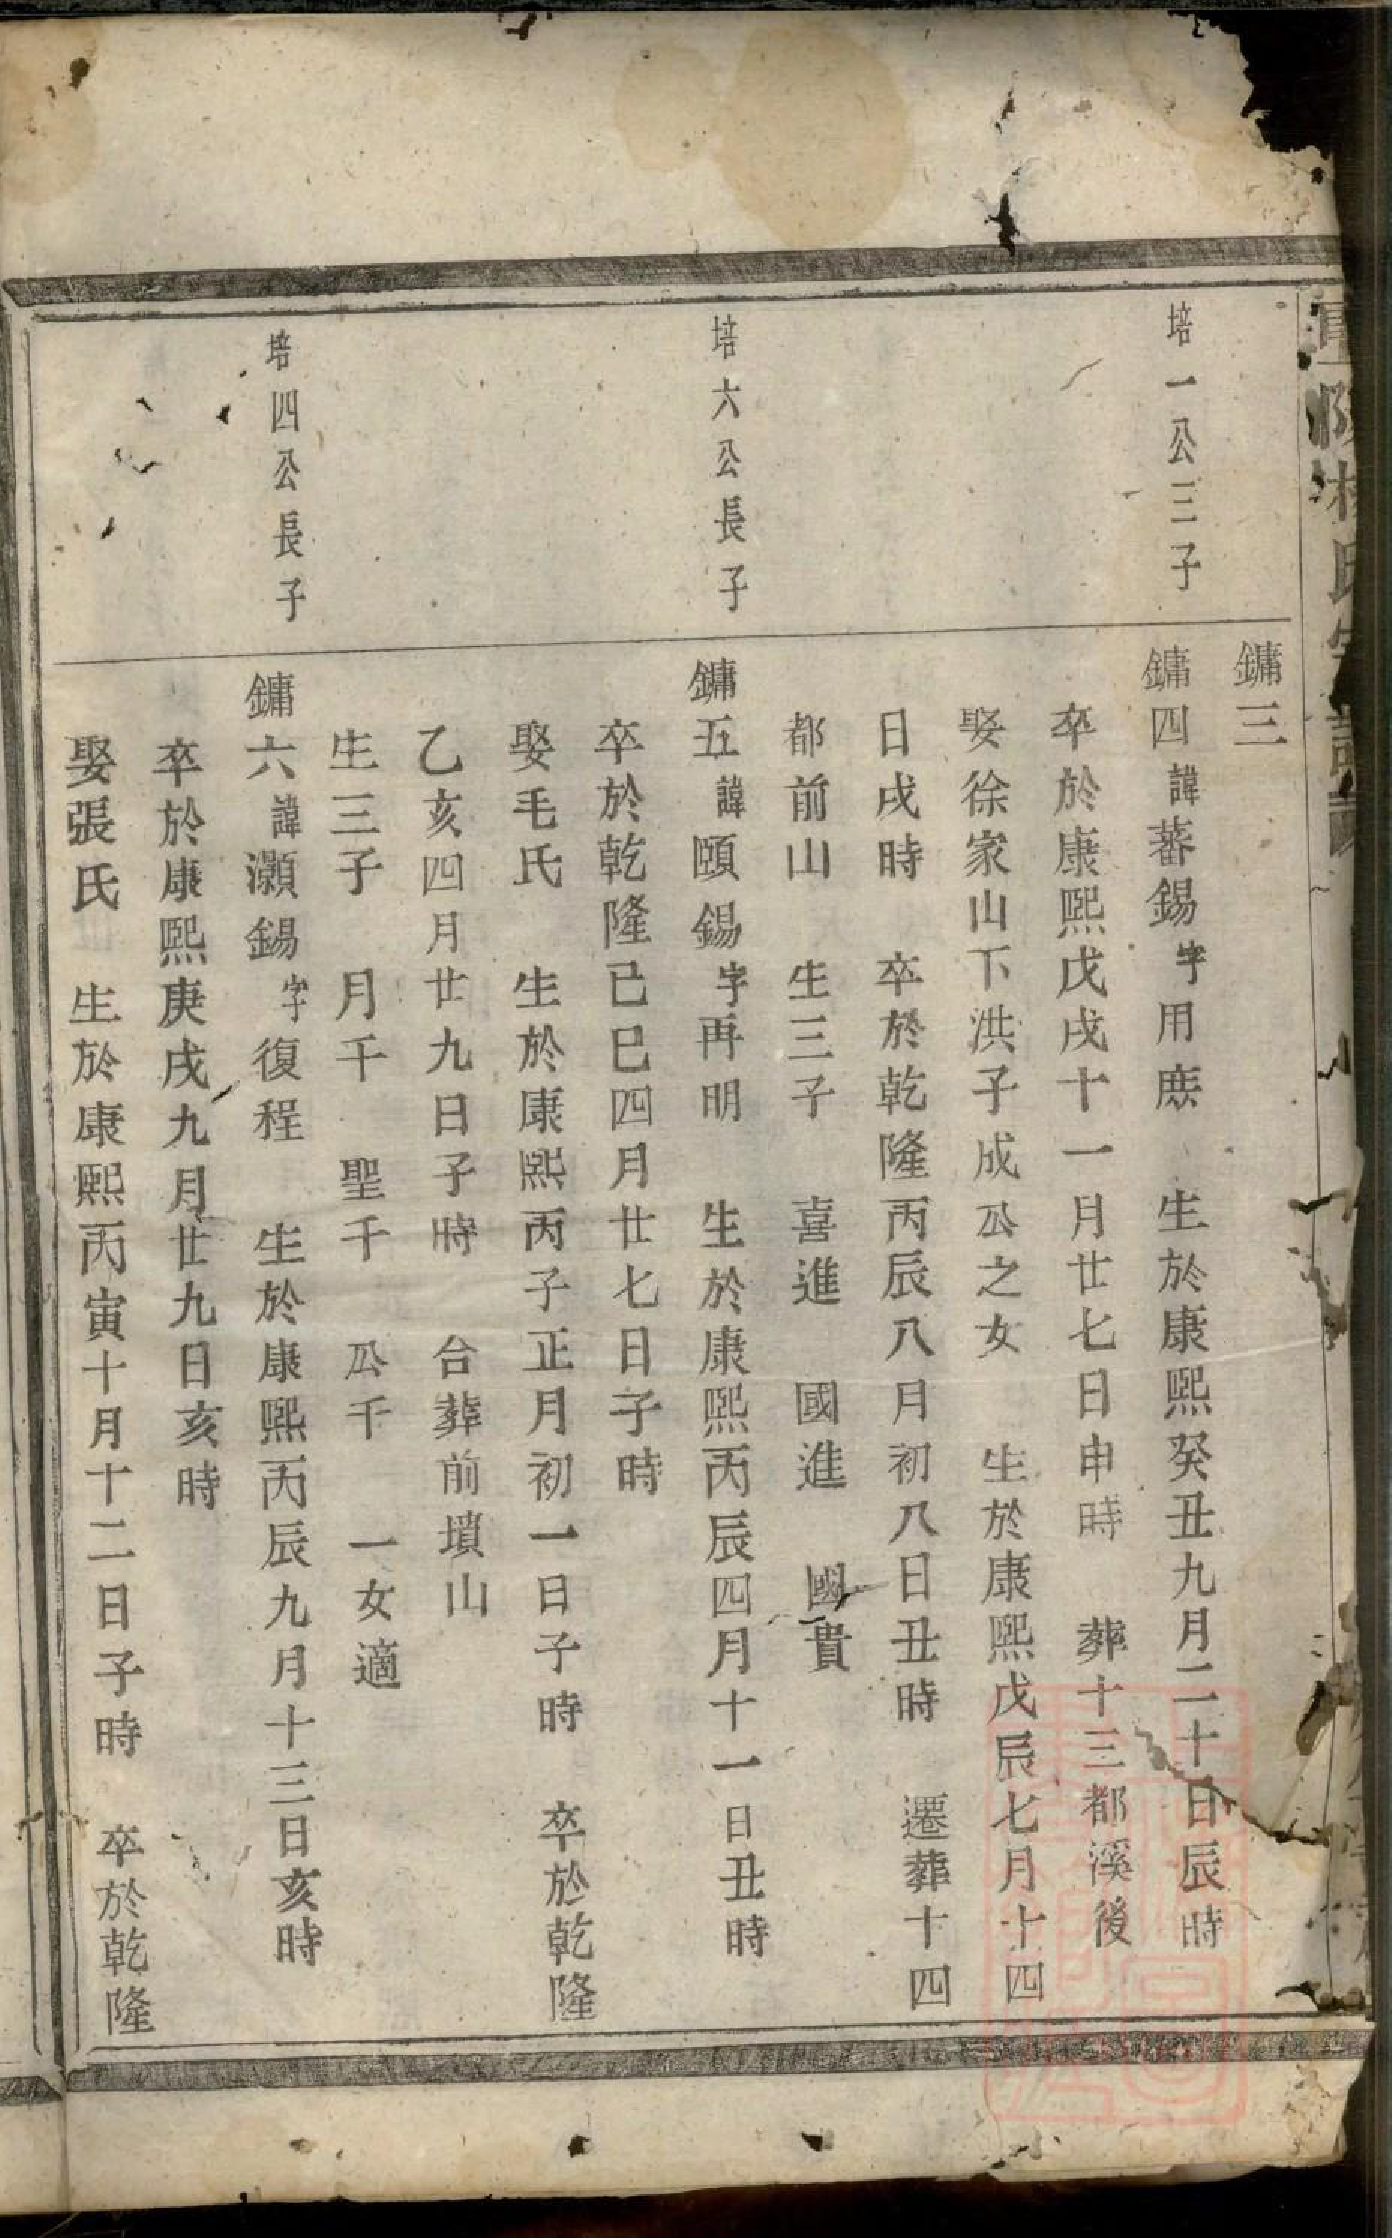 鏞三
培一公三子
鏞四諱蕃錫字用庶 生於康熙癸丑九月二十日辰時
卒於康熙戊戌十一月廿七日申時 葬十三都溪後
娶徐家山下洪子成公之女 生於康熙戊辰七月十四
日戌時 卒於乾隆丙辰八月初八日丑時 遷葬十四
都前山 生三子 喜進 國進 國貴
培六公長子
鏞五諱頤錫字再明 生於康熙丙辰四月十一日丑時
卒於乾隆己巳四月廿七日子時
娶毛氏 生於康熙丙子正月初一日子時 卒於乾隆
乙亥四月廿九日子時 合葬前墳山
生三子 月千 聖千 公千 一女適
培四公長子
鏞六諱灝錫字復程 生於康熙丙辰九月十三日亥時
卒於康熙庚戌九月廿九日亥時
娶張氏 生於康熙丙寅十月十二日子時 卒於乾隆